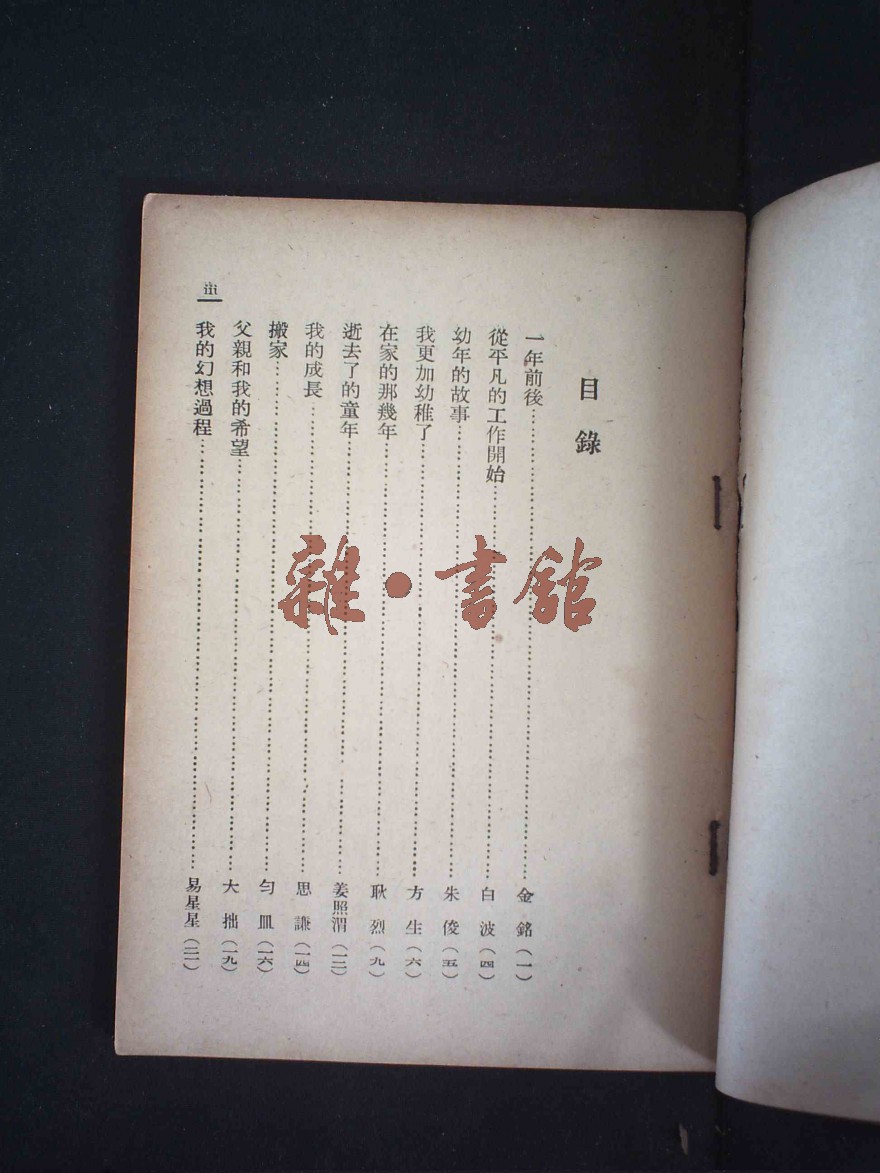 目錄
一年前後……金銘（一）
從平凡的工作開始……白波（四）
幼年的故事……朱俊（五）
我更加幼稚了……方生（六）
在家的那幾年……耿烈（九）
逝去了的童年……姜照渭（一二）
我的成長……思謙（一四）
搬家……勻皿（一六）
父親和我的希望……大拙（一九）
我的幻想過程……易星星（二一）
雜·書館